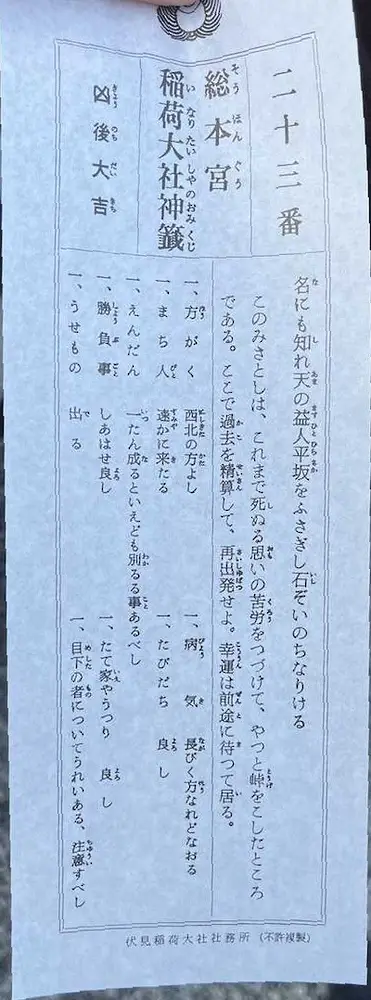 二十三番
総本宮
稲荷大社神籤
凶後大吉
名にも知れ天の益人平坂をふさぎし石ぞいのちなりける
このみさとしは、これまで死ぬる思いの苦労をつづけて、やつと峠をこしたところ
である。ここで過去を精算して、再出発せよ。幸運は前途に待つて居る。
一、方がく 西北の方よし
一、まち人 速かに来たる
一、えんだん 一たん成るといえども別るる事あるべし
一、勝負事 しあはせ良し
一、うせもの 出る
一、病気 長びく方なれどなおる
一、たびだち 良し
一、たて家やうつり 良し
一、目下の者についてうれいある、注意すべし
伏見稲荷大社社務所 (不許複製)